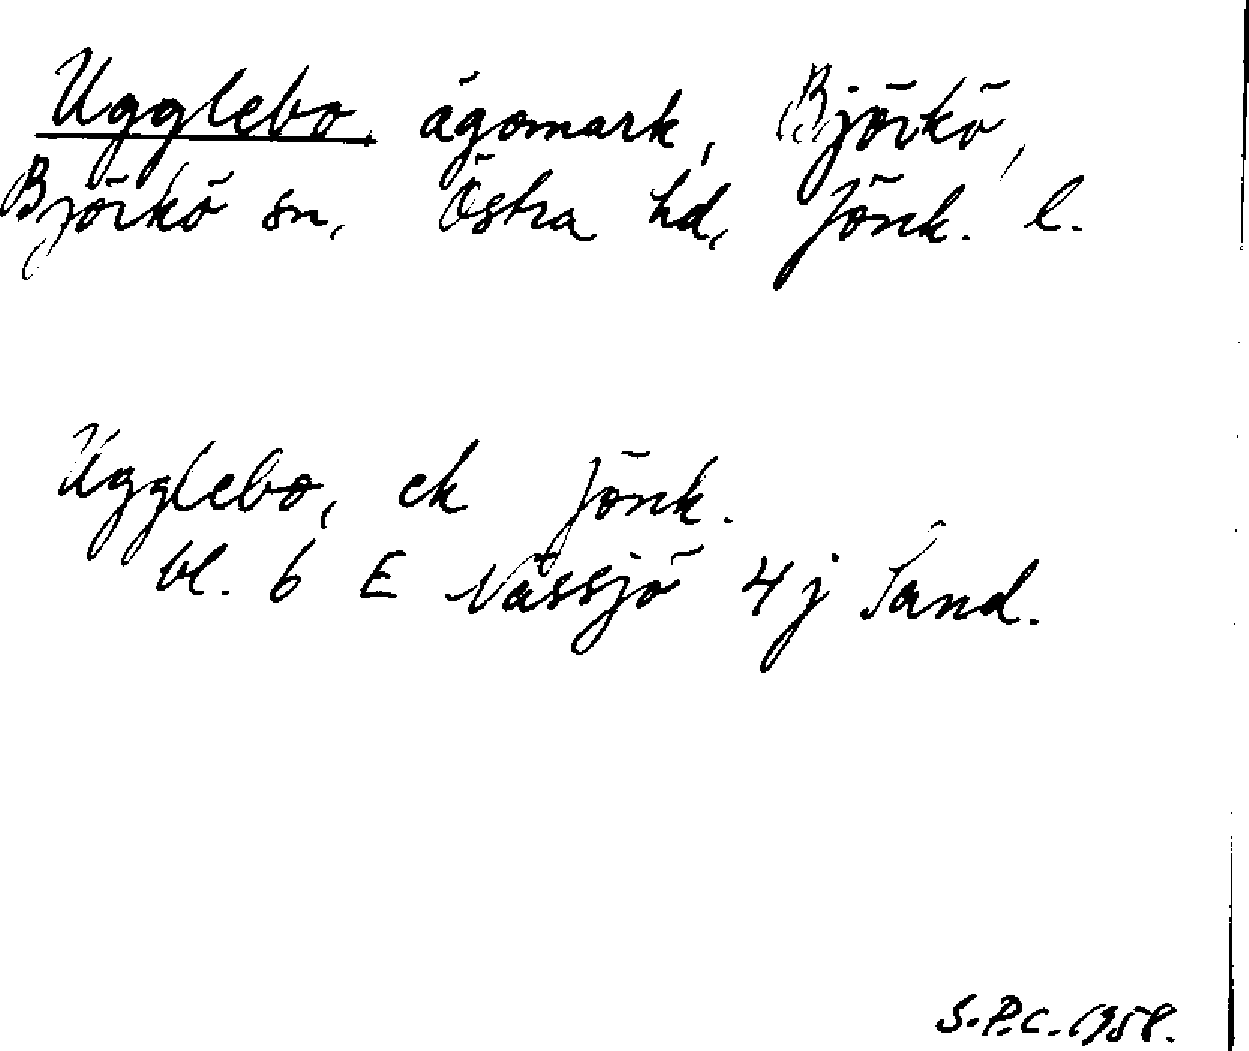 Ugglebo, ägomark, Björkö,
Björkö sn, Östra hd, Jönk. l.
Ugglebo, ek Jönk.
bl. 6 E Nässjö 4j Sand.
S.P.C. 1958.